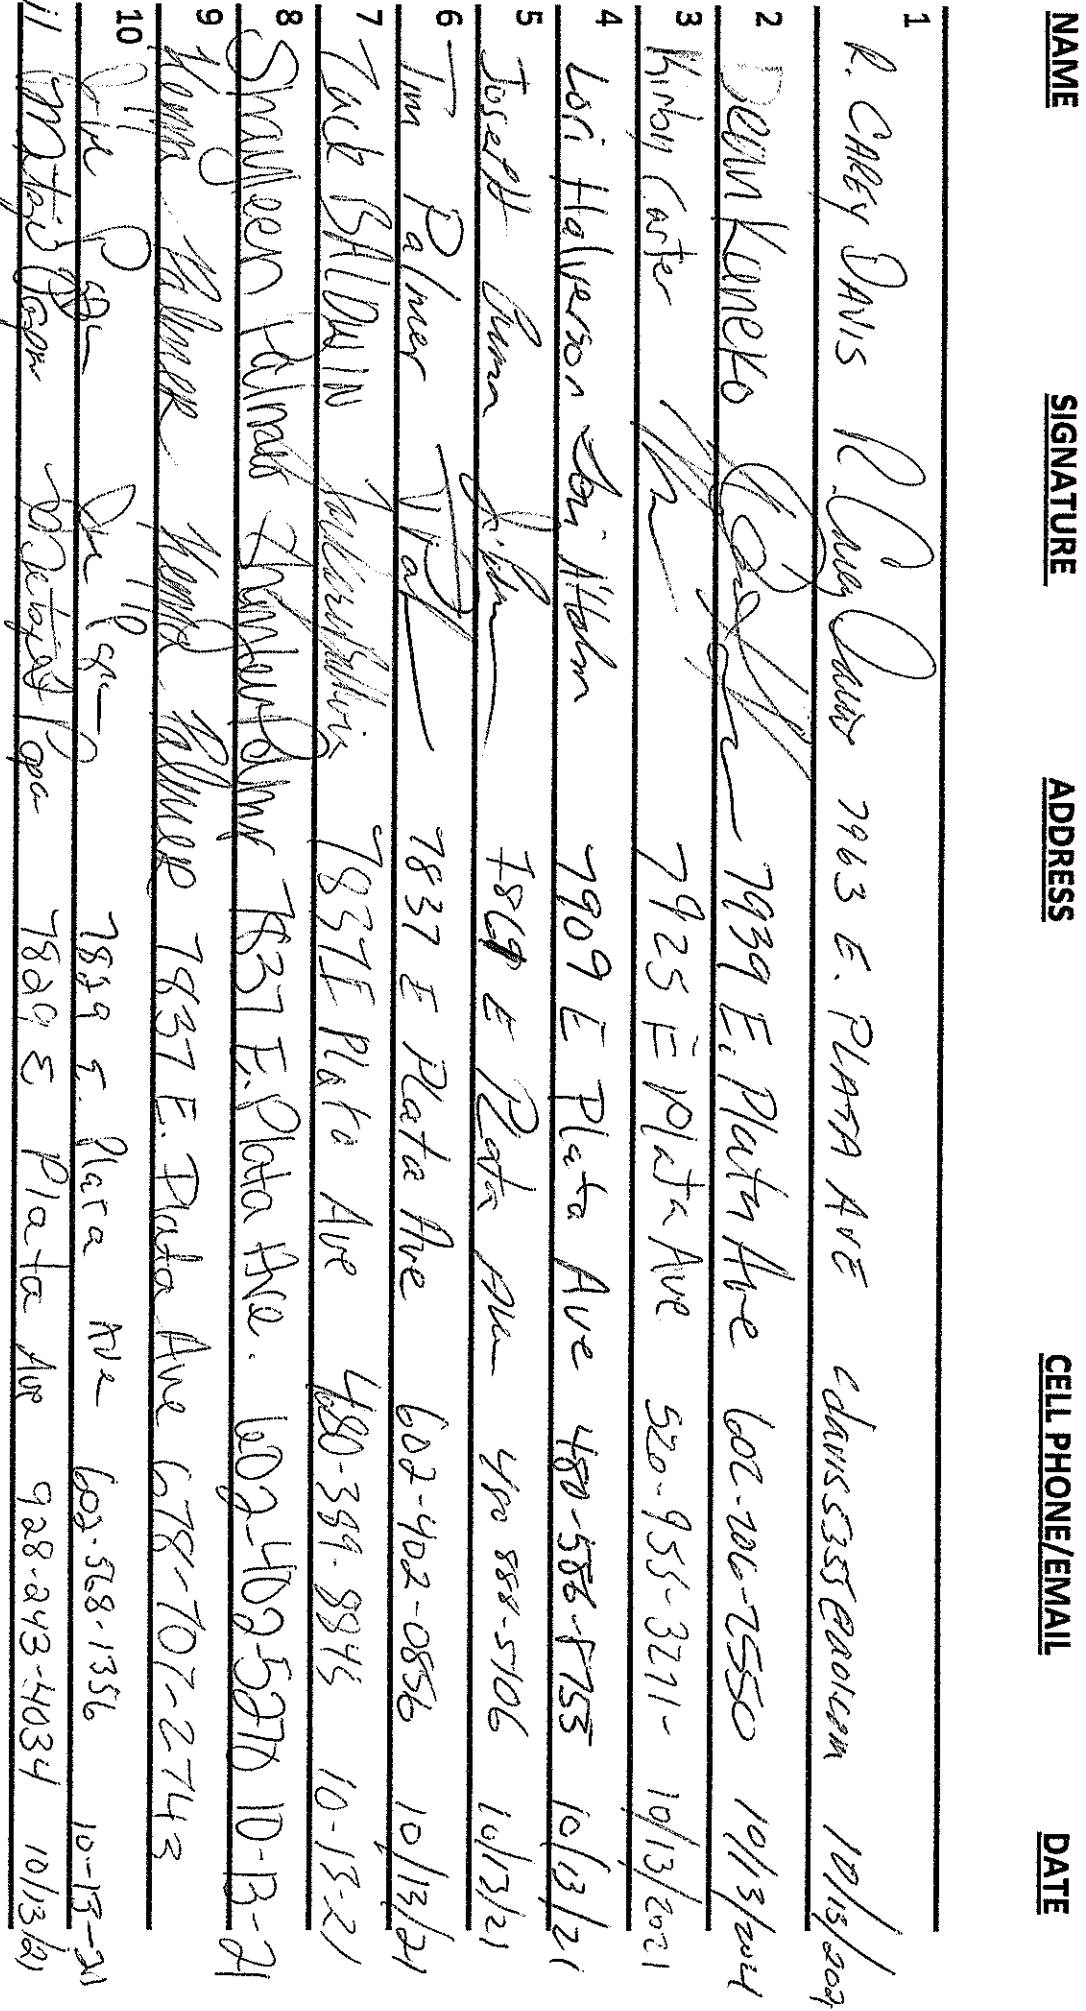 NAME SIGNATURE ADDRESS CELL PHONE/EMAIL DATE
1 R. CAREY DAVIS R. Carey Davis 7963 E. PLATA AVE cdavis5355@aol.com 10/13/2021
2 Kaneko 7939 E. Plata Ave 602-206-7550 10/13/2021
3 Kirby Carter 7925 E Plata Ave 520-955-3271 10/13/2021
4 Lori Halverson Lori Halverson 7909 E Plata Ave 480-586-8755 10/13/21
5 JosePH E Plata Ave 480 888-5106 10/13/21
6 Jim Palmer 7837 E Plata Ave 602-402-0856 10/13/21
7 Zack BALDWIN 7837 E Plata Ave 480-399-8846 10-13-21
8 Shayleen Palmer 7837 E. Plata Ave. 602-402-5276 10-13-21
9 Palmer Palmer 7837 E. Plata Ave 678-707-2743
10 7829 E. Plata Ave 602-568-1356 10-13-21
11 7829 E Plata Ave 928-243-4034 10/13/21